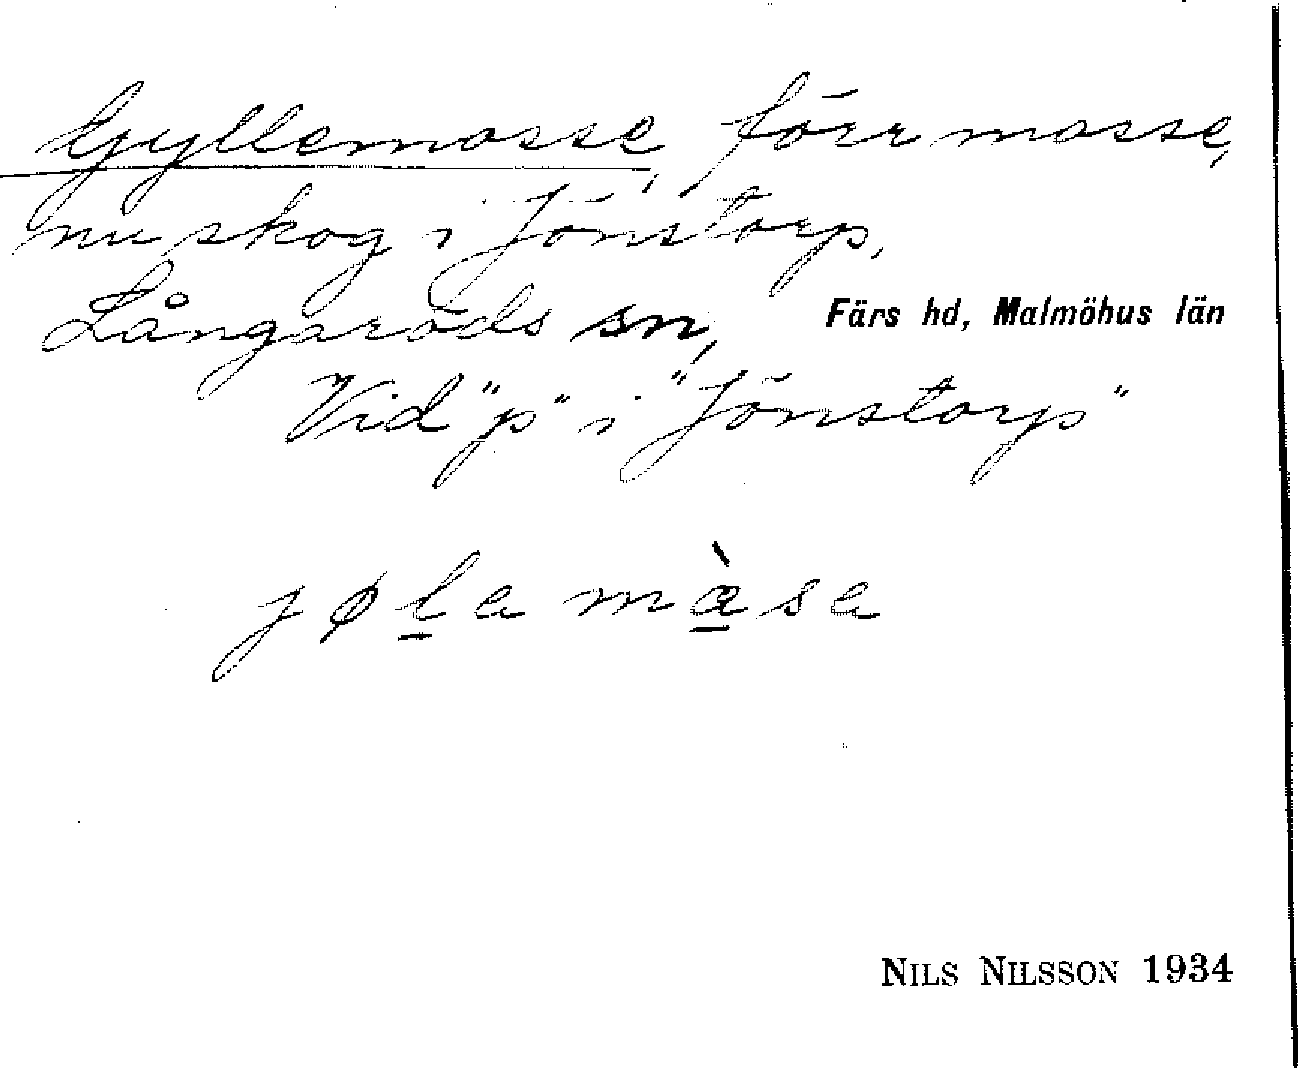 Gyllemosse, förr mosse,
nu skog i Jönstorp,
Långaröds sn, Färs hd, Malmöhus län
Vid "p" i "Jönstorp"
jøl̲a mæ̲̀sa
NILS NILSSON 1934